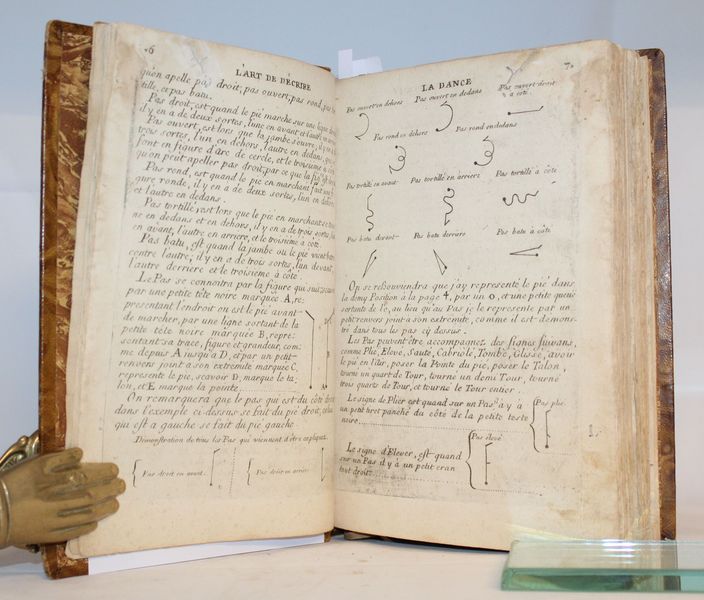 6
L'ART DE DÉCRIRE
qu'on apelle pas droit, pas ouvert, pas rond, pas tor-
tillé, et pas batu.
Pas droit, est quand le pié marche sur une ligne droite,
il y en a de deux sortes, l'une en avant et l'autre en arriere.
Pas ouvert, est lors que la jambe s'ouvre, il y en a de
trois sortes, l'un en dehors, l'autre en dedans, qui se
font en figure d'arc de cercle, et le troisieme a côté
qu'on peut apeller pas droit, par ce que la figure
Pas rond, est quand le pié en marchant fait une fi-
gure ronde, il y en a de deux sortes, l'un en dehors
et l'autre en dedans.
Pas tortillé, est lors que le pié en marchant se tour-
ne en dedans et en dehors, il y en a de trois sortes, l'un
en avant, l'autre en arriere, et le troisieme à côté.
Pas batu, est quand la jambe ou le pié vient batre
contre l'autre, il y en a de trois sortes, l'un devant,
l'autre derriere et le troisieme à côté.
Le Pas se connoitra par la figure qui suit,
par une petite tête noire marquée A, re-
presentant l'endroit ou est le pié avant
de marcher, par une ligne sortant de la
petite tête noire marquée B, repre-
sentant sa trace, figure et grandeur, com-
me depuis A jusqu'a D, et par un petit
renvers joint a son extremité marquée C,
represente le pié, scavoir D, marque le ta-
lon, et E marque la pointe.
On remarquera que le pas qui est du côté droit
dans l'exemple ci-dessus se fait du pie droit, celui
qui est a gauche se fait du pié gauche.
Démonstration de tous les Pas qui viennent d'être expliquez.
Pas droit en avant.
Pas droit en arriere
7.
LA DANCE
Pas ouvert en dehors
Pas ouvert en dedans
Pas ouvert droit
à côté.
Pas rond en dehors
Pas rond en dedans
Pas tortillé en avant
Pas tortillé en arriere
Pas tortillé à côté
Pas batu devant
Pas batu derriere
Pas batu à côté
On se resouviendra que j'ay representé le pié dans
la demy Position a la page 4, par un o, et une petite queüe
sortante de l'o, au lieu qu'au Pas je le represente par un
petit renvers joint a son extremité, comme il est demons-
tré dans tous les pas cÿ dessus.
Les Pas peuvent être accompagnez des Signes suivans,
comme Plié, Elevé, Sauté, Cabriolé, Tombé, Glissé, avoir
le pié en l'air, poser la Pointe du pié, poser le Talon,
tourné un quart de Tour, tourné un demi Tour, tourné
trois quarts de Tour, et tourné le Tour entier.
Le signe de Plier est quand sur un Pas il y à
un petit tiret panché du côté de la petite teste
noire
Pas plié
Le signe d'Elever, est quand
sur un Pas il y à un petit cran
tout droit
Pas élevé